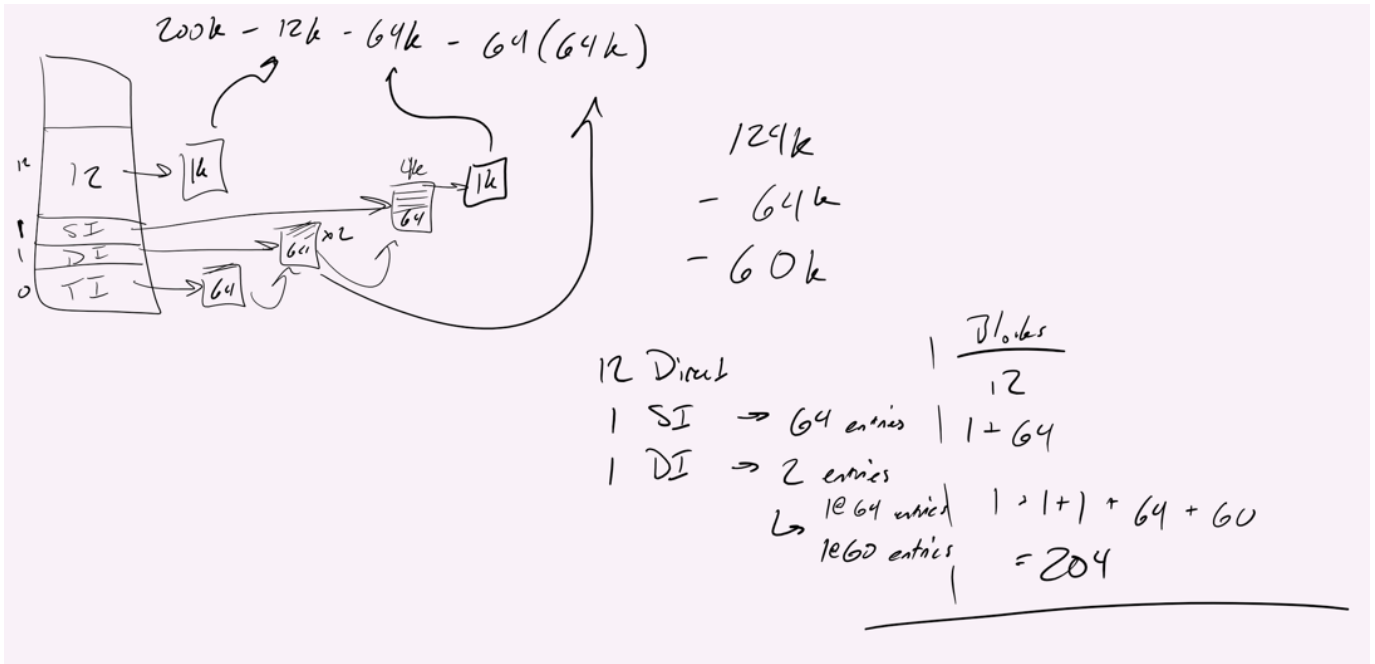 200k - 12k - 64k - 64(64k)
12 12 1k
4k
1k
1 SI 64
1 DI 64 x2
0 TI 64
124k
- 64k
- 60k
Blocks
12 Direct | 12
1 SI → 64 entries | 1 + 64
1 DI → 2 entries
↳ 1@64 entries | 1 + 1 + 1 + 64 + 60
1@60 entries | = 204